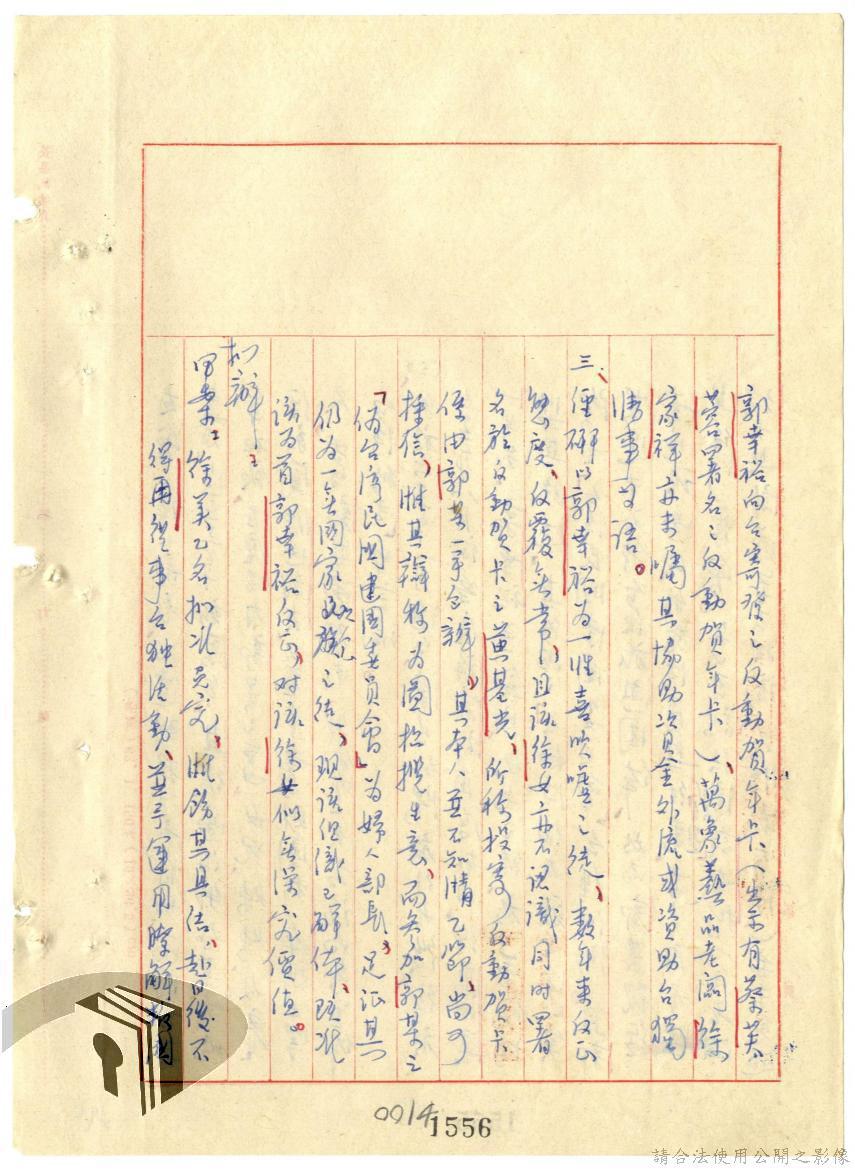 郭幸裕向台寄發之反動賀年卡(出示有蔡芙
蓉署名之反動賀年卡)、萬象藝品老闆徐
家祥亦未囑其協助資金外流或資助台獨
情事等語。
三、經研以郭幸裕為一性喜吹噓之徒、數年來反正
態度、反覆無常、且該徐女亦不認識同時署
名於反動賀卡之黃基光、所稱投寄反動賀卡
係由郭某一手包辦、其本人並不知情乙節、尚可
採信、惟其辯稱為圖招攬生意、而參加郭某之
「偽台灣民國建國委員會」為婦人部長、足証其
仍為一無國家民族觀念之徒、現該組織已解体、頭兆
該為首郭幸裕反正、對該徐女似無深究價值。
擬辦：
甲案：徐美乙名擬准免究、惟飭其具結、赴日後不
得再從事台独活動、並予運用瞭解
0014
1556
請合法使用公開之影像